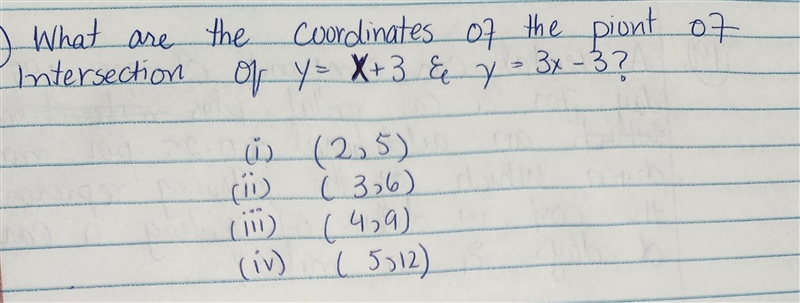 ) What are the coordinates of the piont of
intersection of y = x + 3 & y = 3x - 3?
(i) (2,5)
(ii) (3,6)
(iii) (4,9)
(iv) (5,12)